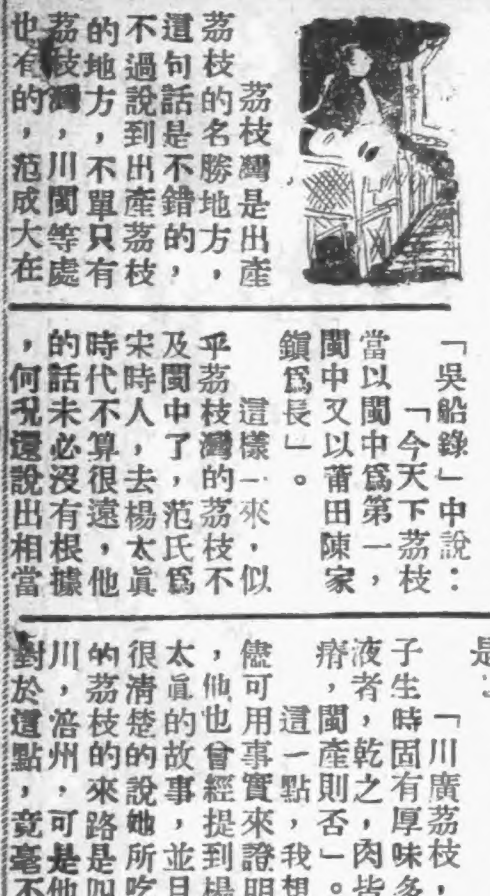 荔枝灣是出產
荔枝的名勝地方，
這句話是不錯的，
不過說到出產荔枝
的地方，不單只有
荔枝灣，川閩等處
也有的，范成大在
「吳船錄」中說：
「今天下荔枝
當以閩中爲第一，
閩中又以莆田陳家
鎮爲長」。
這樣一來，似
乎荔枝灣的荔枝不
及閩中了，范氏爲
宋時人，去楊太眞
時代不算很遠，他
的話未必沒有根據
，何況還說出相當
是：
「川廣荔枝，
子生時固有厚味多
液者，乾之，肉皆
瘠，閩產則否」。
這一點，我想
儘可用事實來證明
，他也曾經提到楊
太眞的故事，並且
很清楚的說她所吃
的荔枝的來路是四
川，涪州，可是他
對於這點，竟毫不